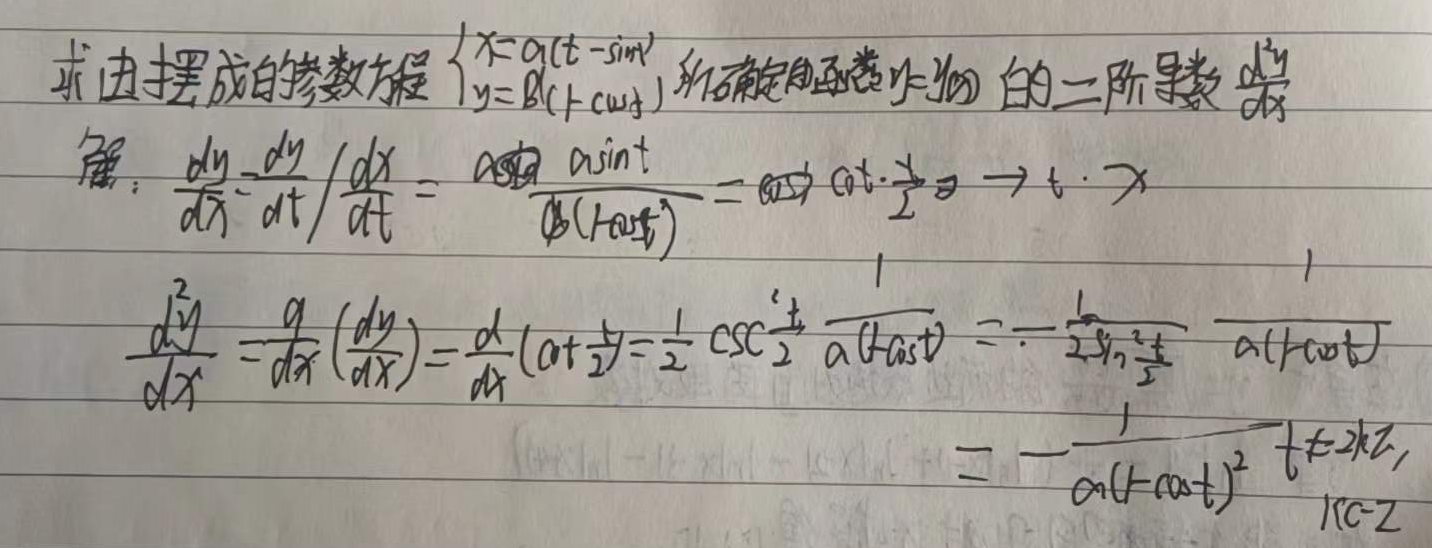 求由摆成的参数方程 { x=a(t-sint) y=B(1-cost) 所确定的函数y=y(x) 的二阶导数 d²y/dx
解: dy/dx = dy/dt / dx/dt = asint / a(1-cost) = cot·t/2 → t·x
d²y/dx = d/dx (dy/dx) = d/dx (cot t/2) = 1/2 csc² t/2 1/a(1-cost) = - 1/2sin² t/2 1/a(1-cost)
= - 1/a(1-cost)² t≠2kZ,
k∈Z